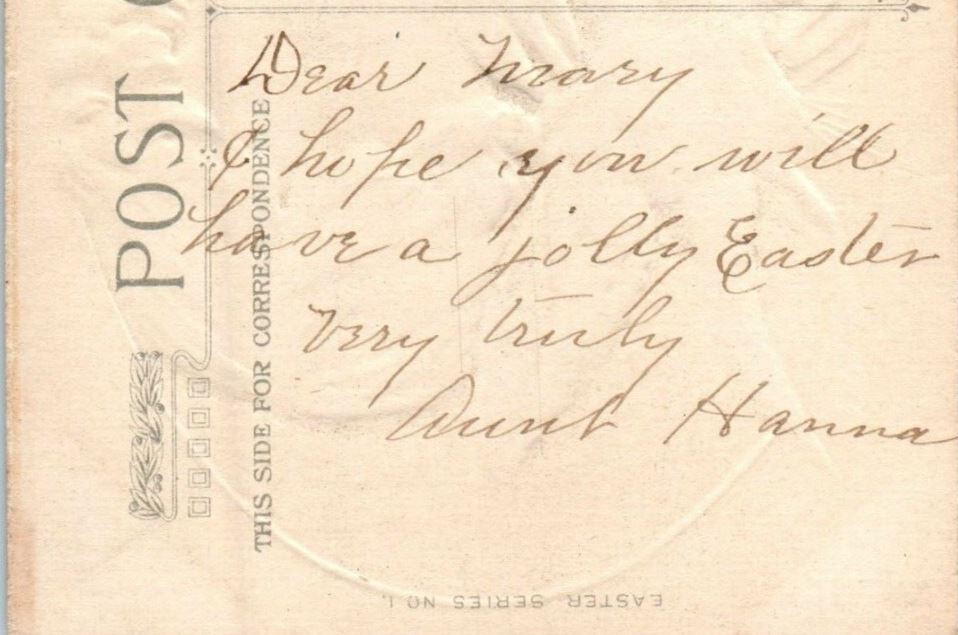 Dear Mary
I hope you will
have a jolly Easter
Very truly
Aunt Hanna
POST
THIS SIDE FOR CORRESPONDENCE
EASTER SERIES NO. 1.